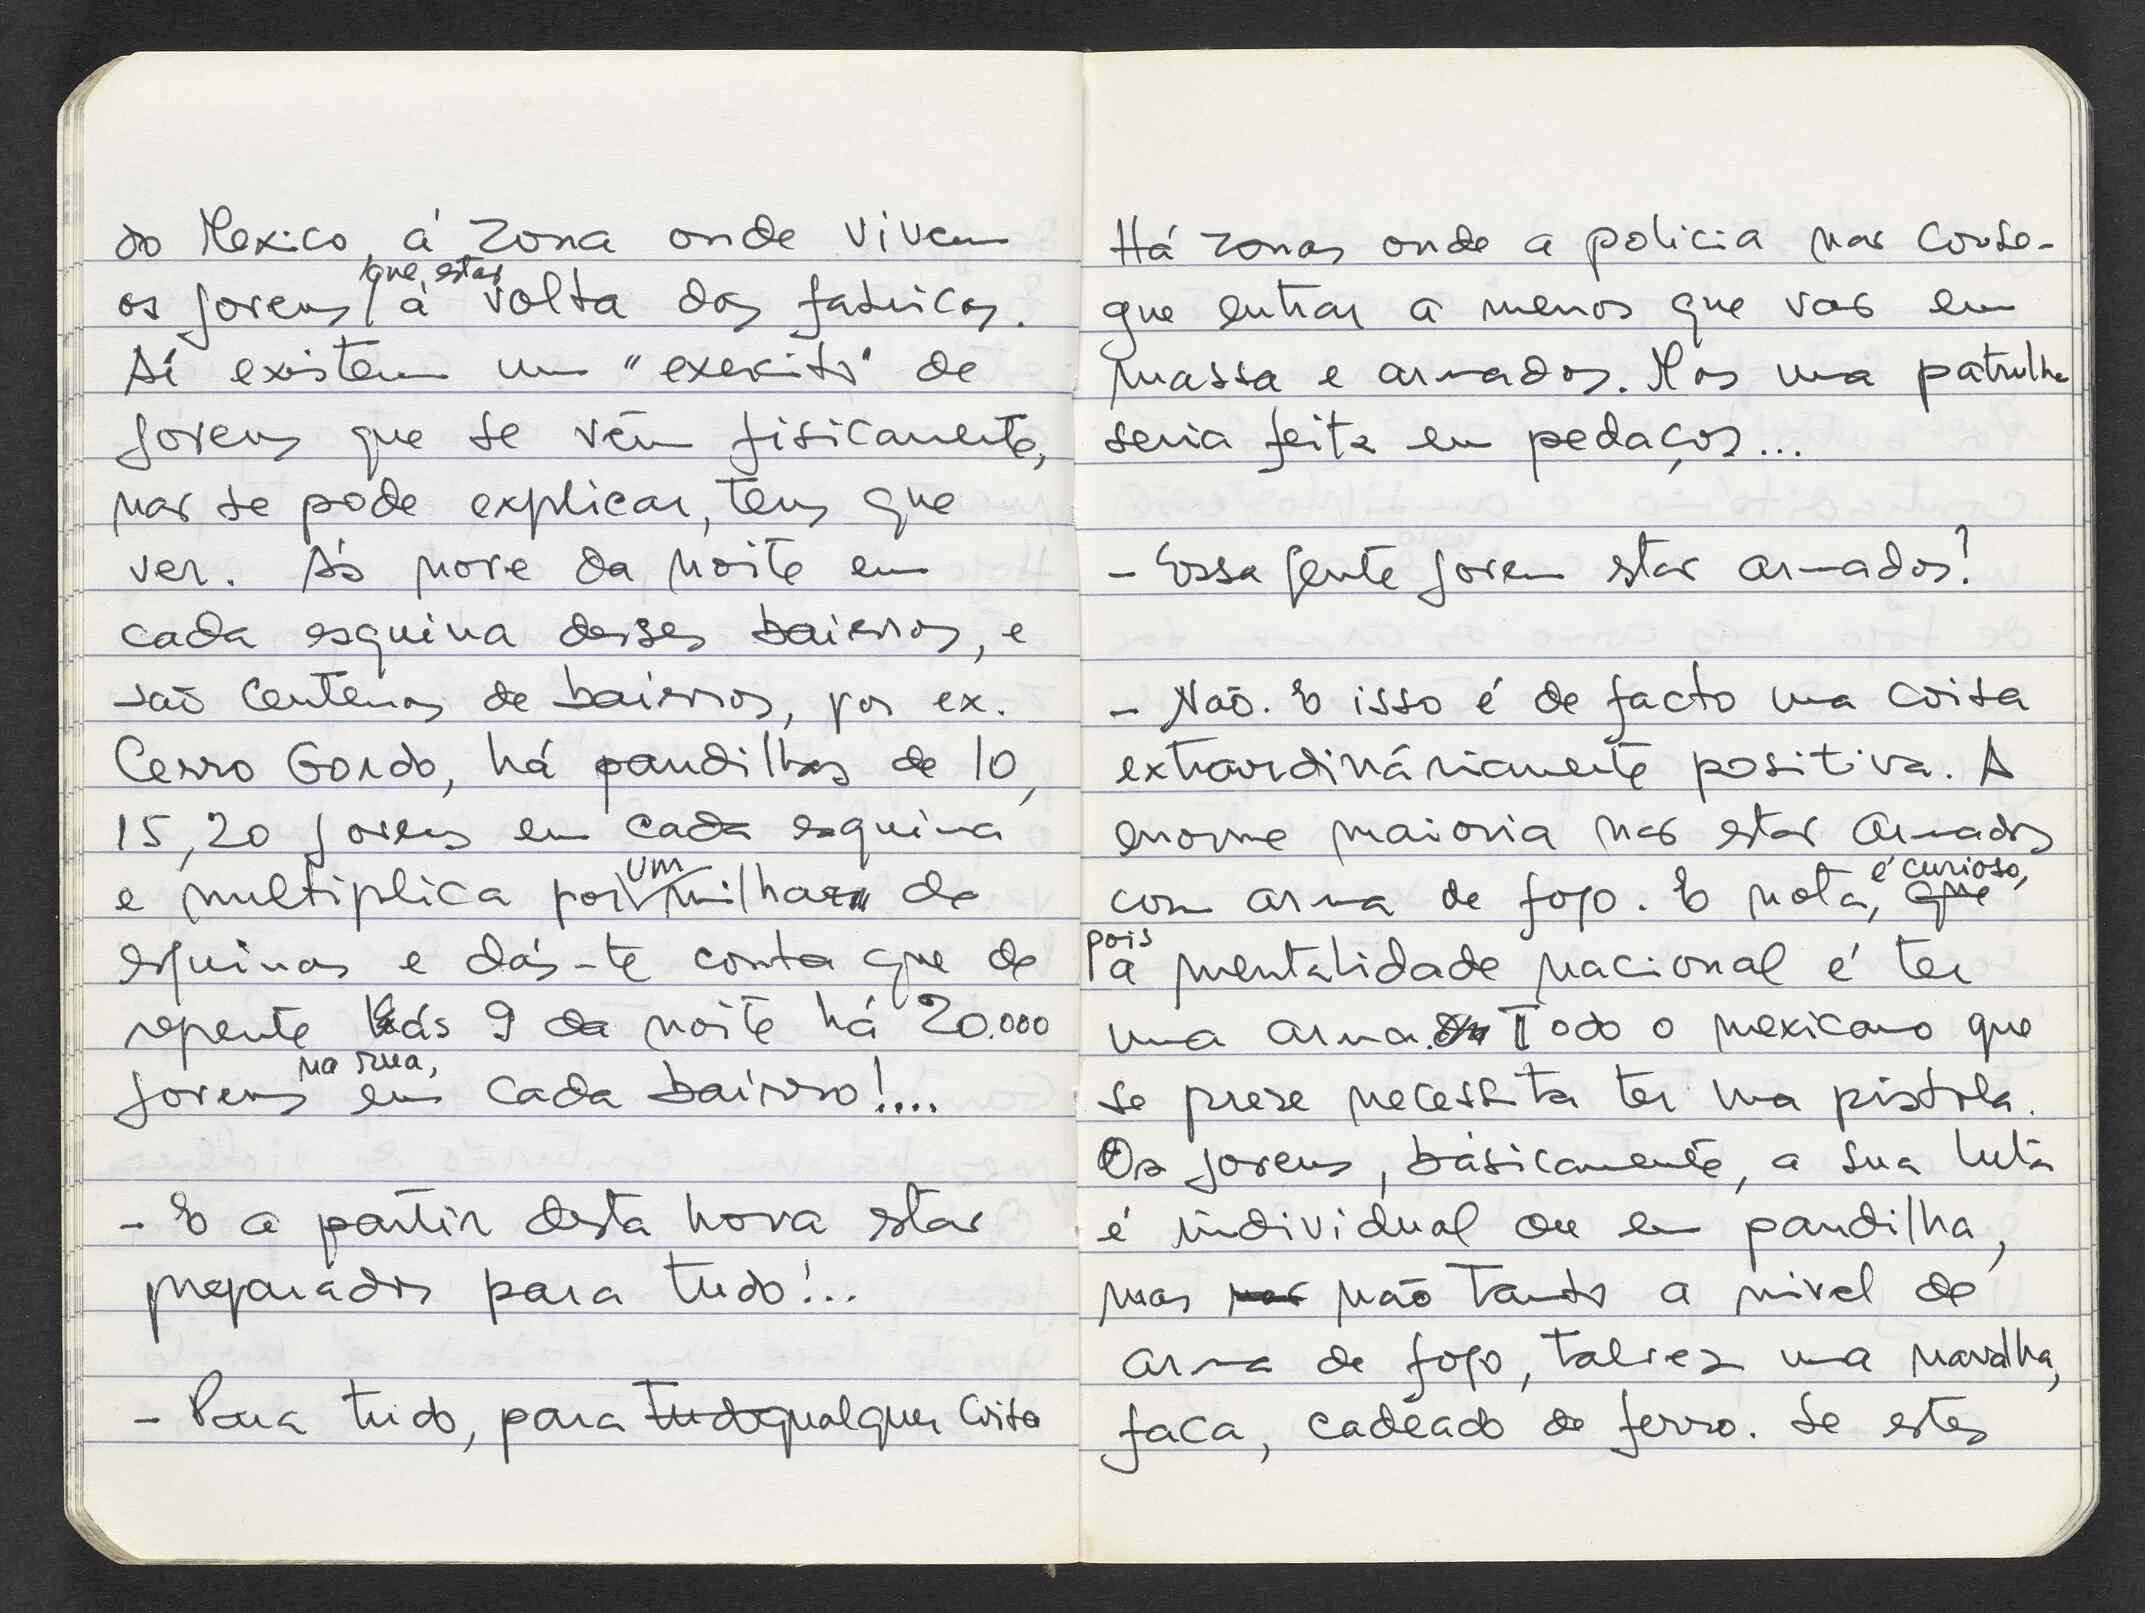 do Mexico, á zona onde vivem
os jovens que estão á volta das fabricas.
Aí existem um "exercito" de
jovens que se vêm fisicamente,
não se pode explicar, tens que
ver. Ás nove da noite em
cada esquina desses bairros, e
são centenas de bairros, por ex.
Cerro Gordo, há pandilhas de 10,
15, 20 jovens em cada esquina
e multiplica por um milhar de
esquinas e dás-te conta que de
repente ás 9 da noite há 20.000
jovens na rua, em cada bairro!....
- E a partir desta hora estão
preparados para tudo!...
- Para tudo, para tudo qualquer coisa
Há zonas onde a policia não conse-
gue entrar a menos que vão em
massa e armados. Mas uma patrulha
seria feita em pedaços...
- Essa gente jovem estão armados?
- Não. E isso é de facto uma coisa
extraordináriamente positiva. A
enorme maioria não estão armados
com arma de fogo. E nota, é curioso, que
pois a mentalidade nacional é ter
uma arma. Todo o mexicano que
se preze necessita ter uma pistola.
Os jovens, básicamente, a sua luta
é individual ou em pandilha,
mas não não tanto a nivel de
arma de fogo, talvez uma navalha,
faca, cadeado de ferro. Se estes